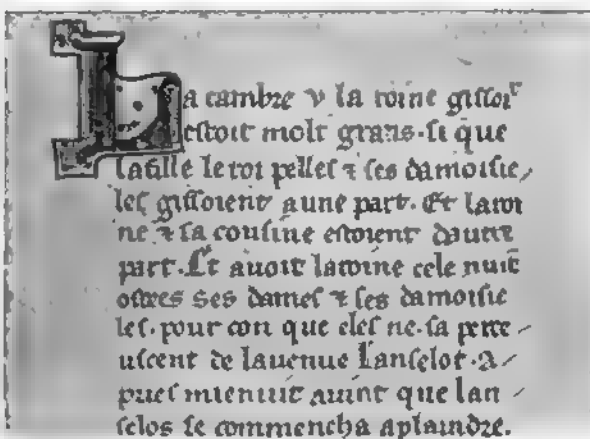 La cambre v la roine gisſoit
estoit molt grans. si que
la fille le roi pelles ⁊ ses damoisie
les gisſoient a une part. Et la roi
ne ⁊ sa cousine estoient dautre
part. Et auoit la roine cele nuit
ostees ses dames ⁊ ses damoisie
les. pour con que eles ne sa perce
uscent de lauenue Lanselot. A
pries mienuit auint que lan
selos se commencha a plaindre.